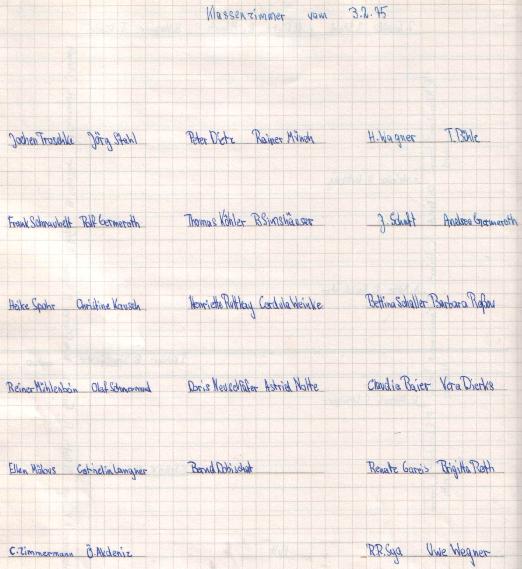 Klassenzimmer vom 3.2.75
Jochen Troschke Jörg Stahl Peter Dietz Rainer Münch H. Wagner T. Döhle
Frank Schnaubelt Rolf Germeroth Thomas Köhler B. Simshäuser J. Schaft Andrea Germeroth
Heike Spohr Christine Krusch Henriette Puttkay Cordula Weinke Bettina Schaller Barbara
Reiner Mühlenbön Olaf Doris Astrid Nolte Claudia Baier Vera Dierks
Ellen Möbus Cornelia Langner Bernd Dobischat Renate Gareis Brigitte Roth
C. Zimmermann Ö. Akdeniz R.R. Sya Uwe Wegner